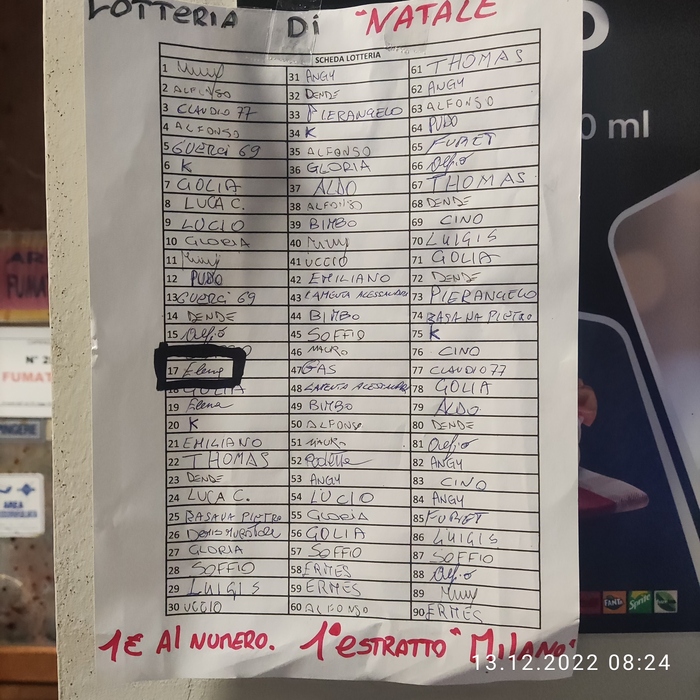 LOTTERIA DI "NATALE
SCHEDA LOTTERIA
1 Mmy
2 ALFONSO
3 CLAUDIO 77
4 ALFONSO
5 GUERCI 69
6 K
7 GOLIA
8 LUCA C.
9 LUCIO
10 GLORIA
11 Mmy
12 PUPO
13 GUERCI 69
14 DENDE
15 Alfio
17 Elena
18 GOLIA
19 Elena
20 K
21 EMILIANO
22 THOMAS
23 DENDE
24 LUCA C.
25 BASANA PIETRO
26
27 GLORIA
28 SOFFIO
29 LUIGIS
30 UCCIO
31 ANGY
32 DENDE
33 PIERANGELO
34 K
35 ALFONSO
36 GLORIA
37 ALDO
38 ALFONSO
39 BIMBO
40 Mmy
41 UCCIO
42 EMILIANO
43 LAMENTA ALESSANDRO
44 BIMBO
45 SOFFIO
46 MAURO
47 GAS
48 LAMENTA ALESSANDRO
49 BIMBO
50 ALFONSO
51 MAURO
52
53 ANGY
54 LUCIO
55 GLORIA
56 GOLIA
57 SOFFIO
58 ERMES
59 ERMES
60 ALFONSO
61 THOMAS
62 ANGY
63 ALFONSO
64 PUPO
65 FURET
66 Alfio
67 THOMAS
68 DENDE
69 CINO
70 LUIGIS
71 GOLIA
72 DENDE
73 PIERANGELO
74 BASANA PIETRO
75 K
76 CINO
77 CLAUDIO 77
78 GOLIA
79 ALDO
80 DENDE
81 Alfio
82 ANGY
83 CINO
84 ANGY
85 FURET
86 LUIGIS
87 SOFFIO
88 Alfio
89 Mmy
90 ERMES
1€ Al NUMERO. 1° ESTRATTO "MILANO"
0 ml
FUMAT
N° 2
FANTA Sprite
13.12.2022 08:24